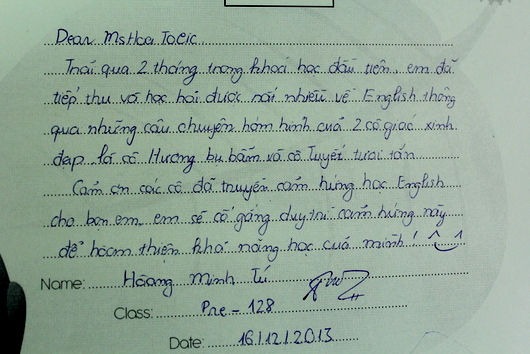 Dear MsHoa Toeic
Trải qua 2 tháng trong khoá học đầu tiên, em đã
tiếp thu và học hỏi được rất nhiều về English thông
qua những câu chuyện hóm hỉnh của 2 cô giáo xinh
đẹp là cô Hương bụ bẫm và cô Tuyết tươi tắn
Cảm ơn các cô đã truyền cảm hứng học English
cho bọn em, em sẽ cố gắng duy trì cảm hứng này
để hoàm thiện khả năng học của mình! ^‿^
Name: Hoàng Minh Tú
Class: Pre - 128
Date: 16/12/2013